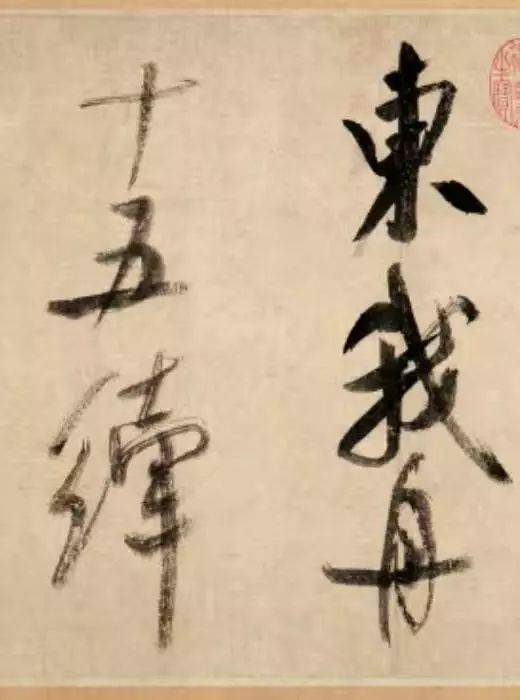 東我舟
十五縴